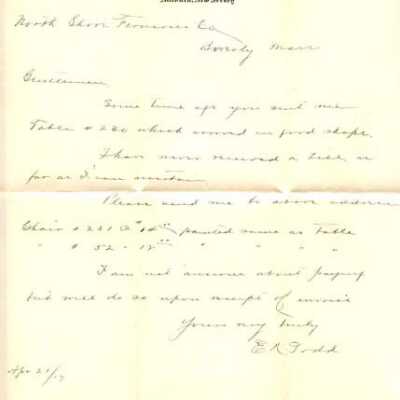 North Shore Ferneries Co
Beverly Mass
Gentlemen
Some time ago you sent me
Table # 220 which arrived in good shape.
I have now received a bill, as
far as I can
Please send me to above address
Chair # 231 @ $14.00 painted same as table
" # 52 - 18.00 " " "
I am not anxious about paying
but will do so upon receipt of invoice
Yours very truly
E R Todd
Apr 21/17